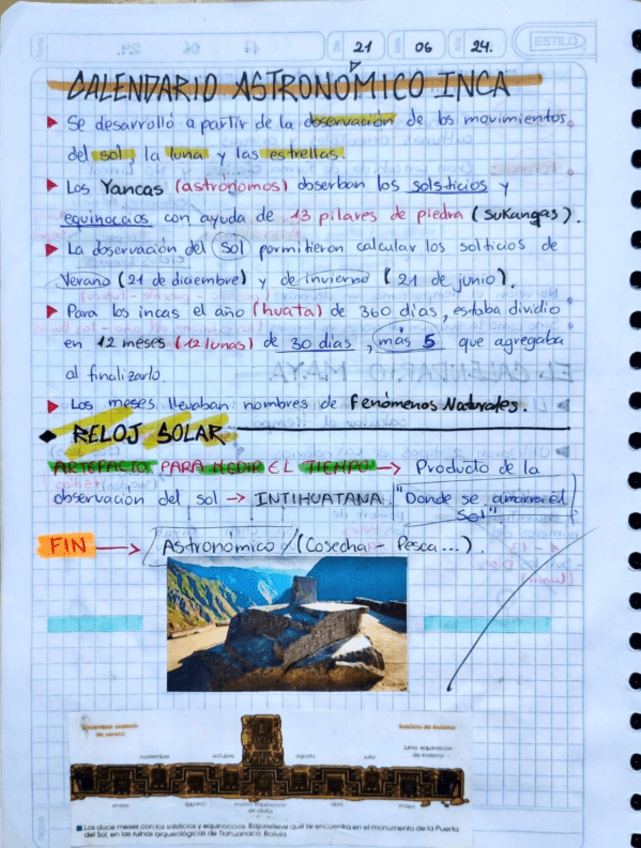 21 06 24.
ESTILO
CALENDARIO ASTRONÓMICO INCA
Se desarrolló a partir de la observación de los movimientos
del sol, la luna y las estrellas.
Los Yancas (astrónomos) obserban los solsticios y
equinoccios con ayuda de 13 pilares de piedra (Sukangas).
La observación del sol permitieron calcular los solticios de
Verano (21 de diciembre) y de invierno (21 de junio).
Para los incas el año (huata) de 360 días, estaba dividio
en 12 meses (12 lunas) de 30 días, más 5 que agregaba
al finalizarlo.
Los meses llevaban nombres de Fenómenos Naturales.
RELOJ SOLAR
ARTEFACTO PARA MEDIR EL TIEMPO → Producto de la
observación del sol → INTIHUATANA "Donde se amarra el
Sol"
FIN → Astronómico / (Cosecha - Pesca...).
solsticio Solsticio de invierno
de verano
noviembre octubre agosto julio junio equinoccio
de invierno
enero marzo equinoccio abril mayo
de otoño
Los doce meses con los solsticios y equinoccios. Bajorrelieve que se encuentra en el monumento de la Puerta
del Sol, en las ruinas arqueológicas de Tiahuanaco, Bolivia.